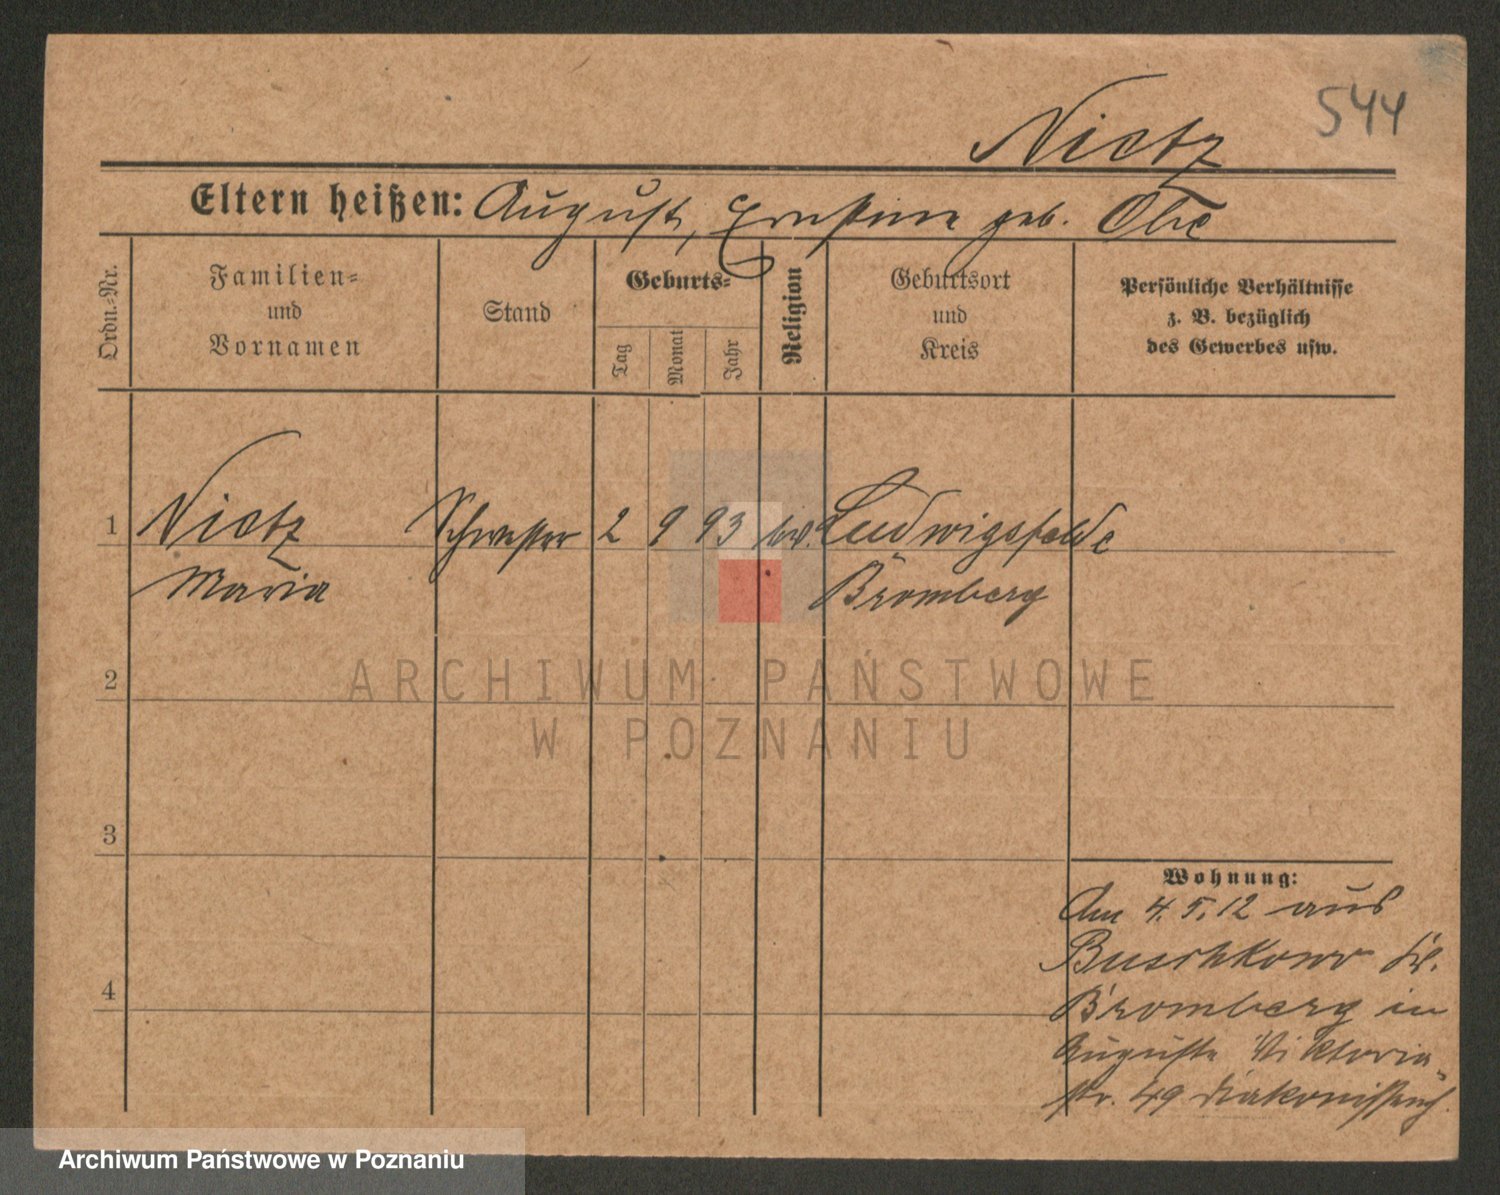 544
Nietz
Eltern heißen: August, Ernstine geb. Ohe
Ordn.-Nr.
Familien=
und
Vornamen
Stand
Geburts=
Tag
Monat
Jahr
Religion
Geburtsort
und
Kreis
Persönliche Verhältnisse
z. B. bezüglich
des Gewerbes usw.
1 Nietz Schwester 2 9 93 Ludwigsfelde
Maria Bromberg
2
ARCHIWUM PAŃSTWOWE
W POZNANIU
3
Wohnung:
Am 4.5.12 aus
Buschkowo Kr.
4
Bromberg in
Auguste Viktoria-
str. 49 Diakonissenh.
Archiwum Państwowe w Poznaniu